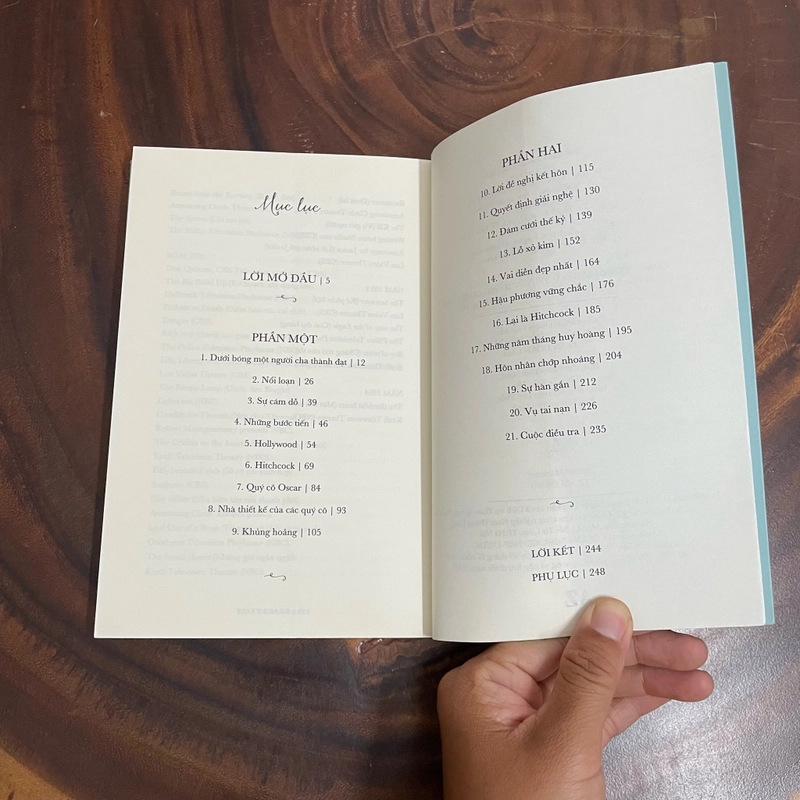 Mục lục
LỜI MỞ ĐẦU | 5
PHẦN MỘT
1. Dưới bóng một người cha thành đạt | 12
2. Nổi loạn | 26
3. Sự cám dỗ | 39
4. Những bước tiến | 46
5. Hollywood | 54
6. Hitchcock | 69
7. Quý cô Oscar | 84
8. Nhà thiết kế của các quý cô | 93
9. Khủng hoảng | 105
PHẦN HAI
10. Lời đề nghị kết hôn | 115
11. Quyết định giải nghệ | 130
12. Đám cưới thế kỷ | 139
13. Lỗ xỏ kim | 152
14. Vai diễn đẹp nhất | 164
15. Hậu phương vững chắc | 176
16. Lại là Hitchcock | 185
17. Những năm tháng huy hoàng | 195
18. Hôn nhân chớp nhoáng | 204
19. Sự hàn gắn | 212
20. Vụ tai nạn | 226
21. Cuộc điều tra | 235
LỜI KẾT | 244
PHỤ LỤC | 248